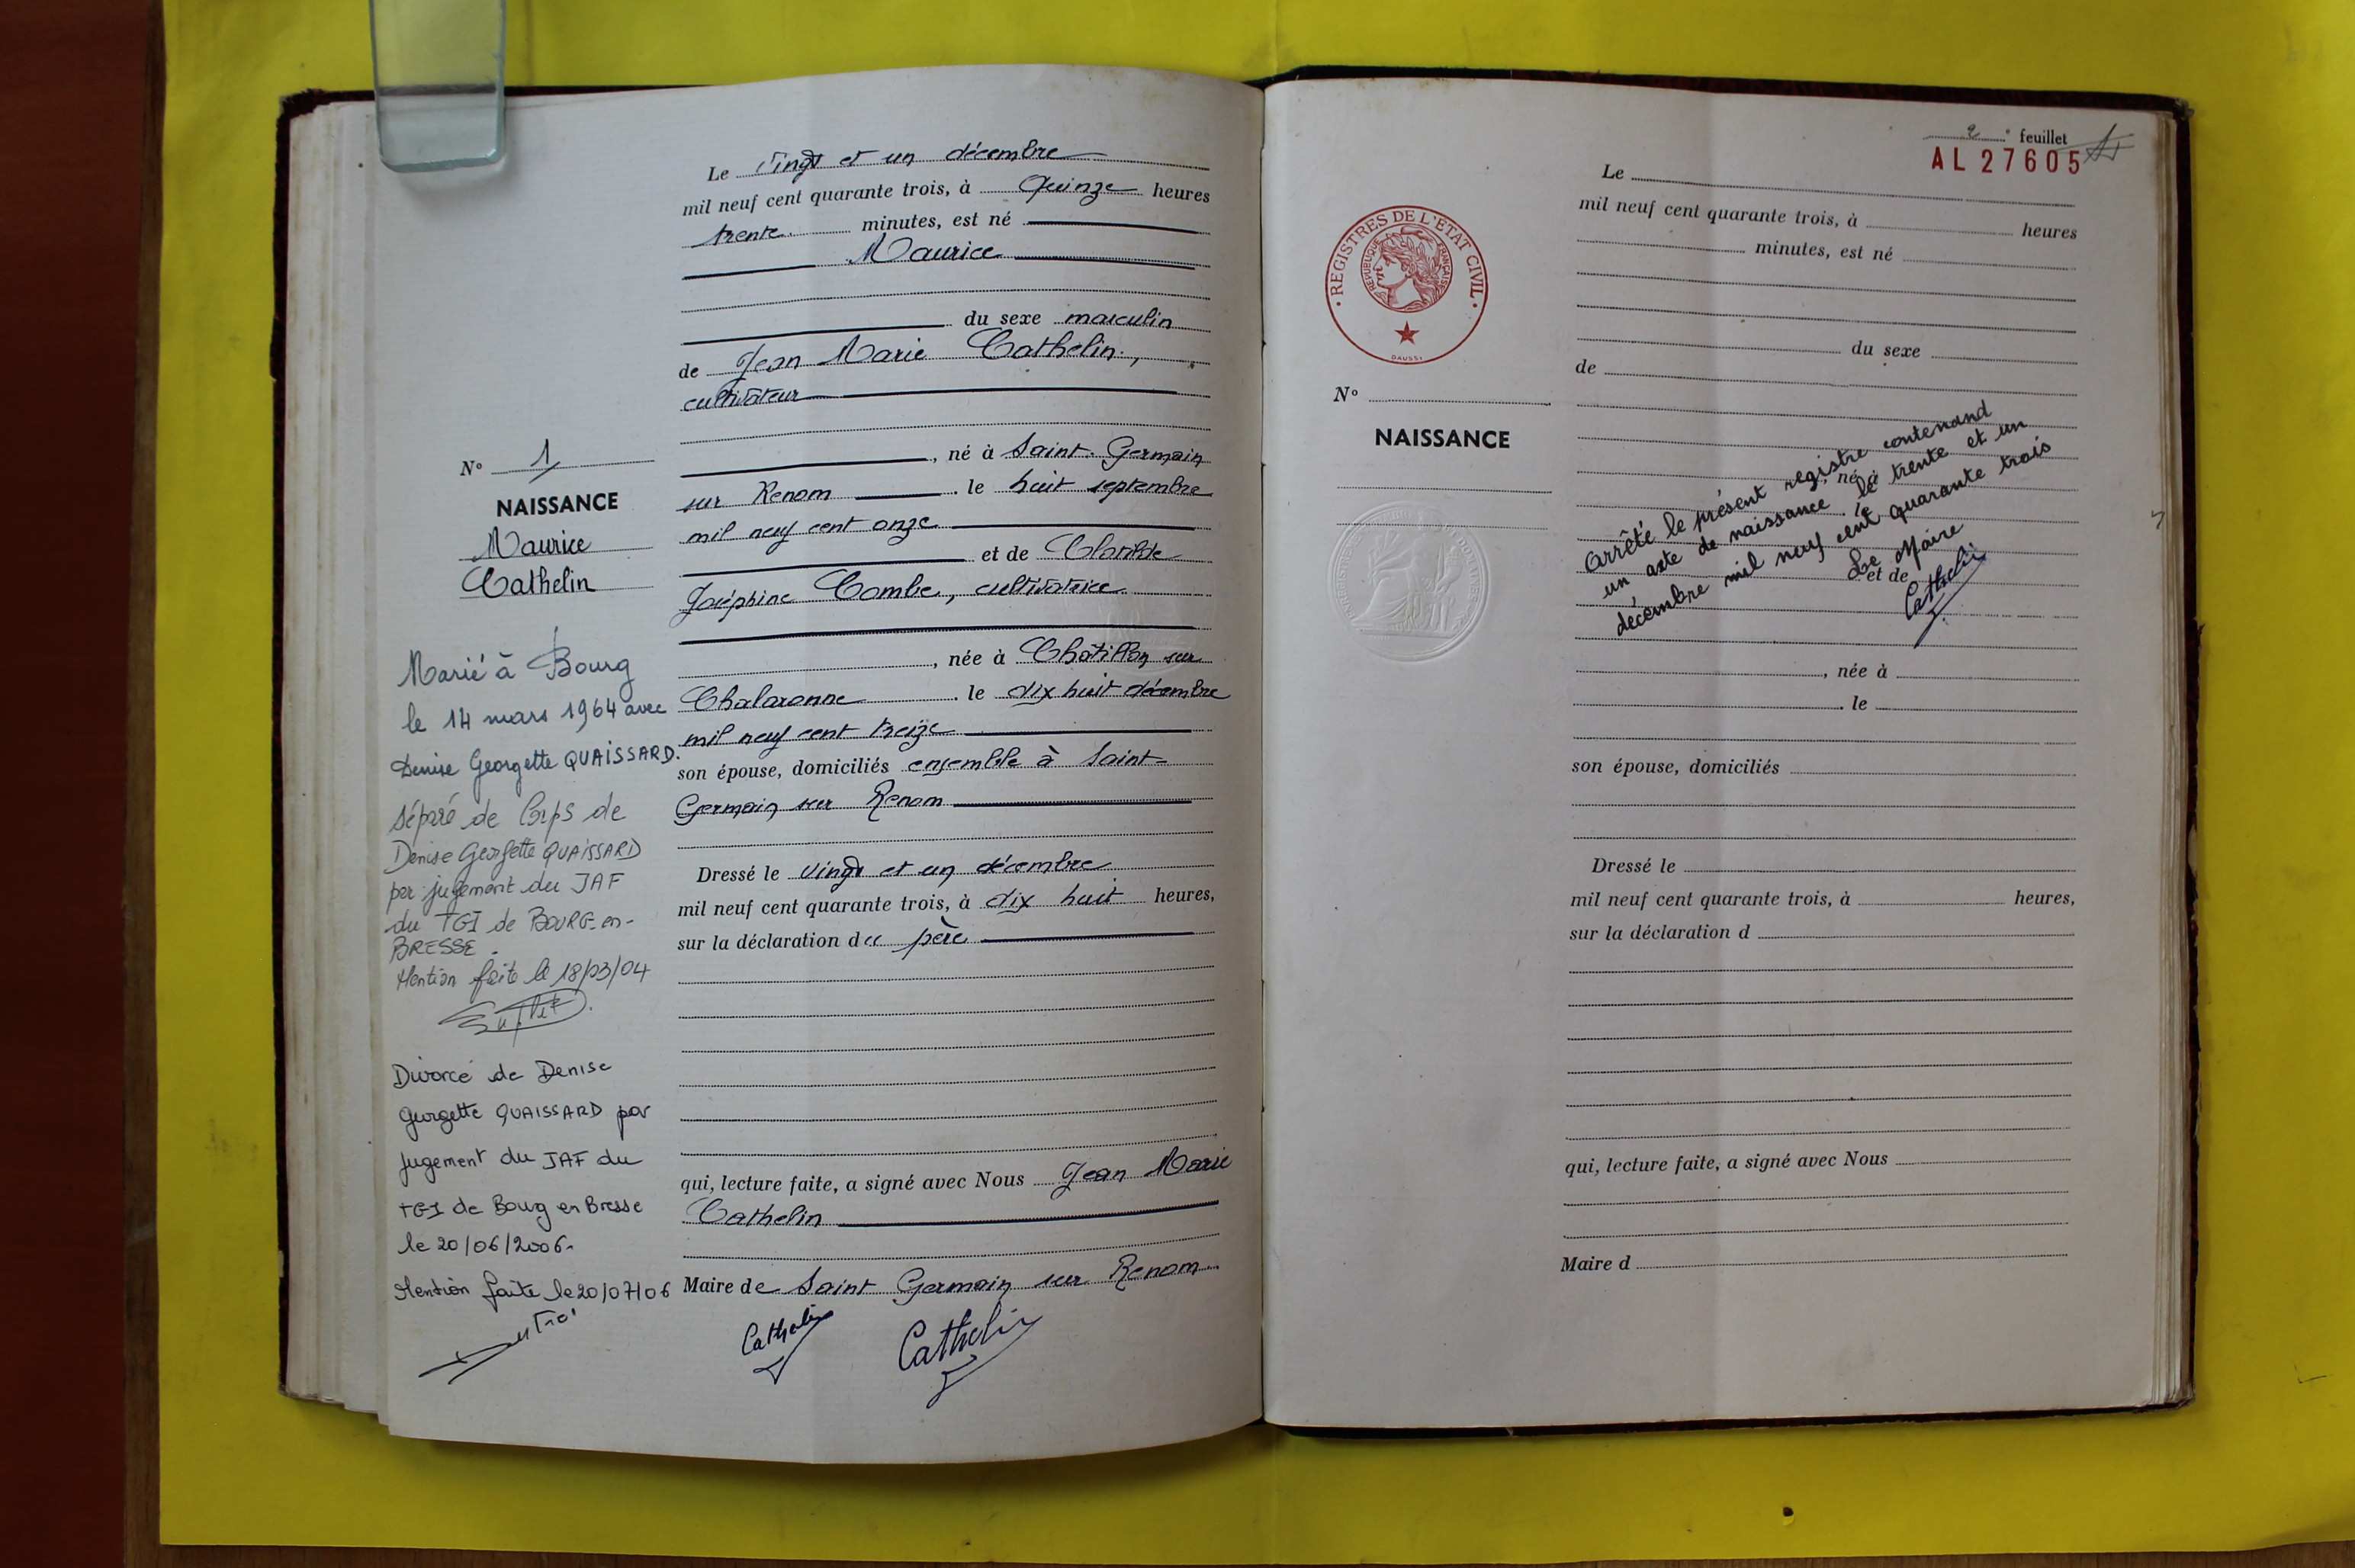 Le vingt et un décembre
mil neuf cent quarante trois, à quinze heures
trente minutes, est né
Maurice
du sexe masculin
de Jean Marie Cathelin,
cultivateur
, né à Saint Germain
sur Renom le huit septembre
mil neuf cent onze
et de Clotilde
Joséphine Combe, cultivatrice
, née à Châtillon sur
Chalaronne le dix huit décembre
mil neuf cent treize
son épouse, domiciliés ensemble à Saint-
Germain sur Renom
Dressé le vingt et un décembre
mil neuf cent quarante trois, à dix huit heures,
sur la déclaration du père
qui, lecture faite, a signé avec Nous Jean Marie
Cathelin
Maire de Saint Germain sur Renom
Cathelin
Cathelin
N° 1
NAISSANCE
Maurice
Cathelin
Marié à Bourg
le 14 mars 1964 avec
Denise Georgette QUAISSARD.
Séparé de Corps de
Denise Georgette QUAISSARD
par jugement du JAF
du TGI de BOURG-en-
BRESSE.
Mention faite le 18/03/04
Divorcé de Denise
Georgette QUAISSARD par
jugement du JAF du
TGI de Bourg en Bresse
le 20/06/2006.
Mention faite le 20/07/06
2e feuillet
AL 27605
REGISTRES DE L'ÉTAT CIVIL
RÉPUBLIQUE FRANÇAISE
DAUSSY
N°
NAISSANCE
Le
mil neuf cent quarante trois, à heures
minutes, est né
du sexe
de
, né à
le
et de
, née à
. le
son épouse, domiciliés
Dressé le
mil neuf cent quarante trois, à heures,
sur la déclaration d
qui, lecture faite, a signé avec Nous
Maire d
Arrêté le présent registre contenand
un acte de naissance le trente et un
décembre mil neuf cent quarante trois
Le Maire
Cathelin